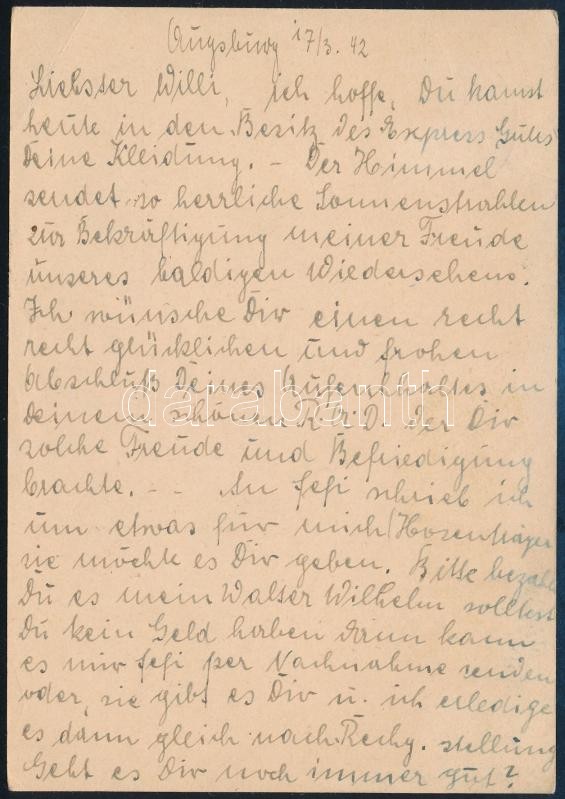 Augsburg 17/3. 42
Liebster Willi, ich hoffe, Du kamst
heute in den Besitz des Express Gutes
Deine Kleidung. – Der Himmel
sendet so herrliche Sonnenstrahlen
zur Bekräftigung meiner Freude
unseres baldigen Wiedersehens.
Ich wünsche Dir einen recht
recht glücklichen und frohen
Abschluß Deines Aufenthaltes in
Deinem schönen R.A.D. der Dir
solche Freude und Befriedigung
brachte. – – An Fefi schrieb ich
um etwas für mich (Hosenträger
sie möchte es Dir geben. Bitte bezahle
Du es mein Walter Wilhelm solltest
Du kein Geld haben dann kann
es mir Fefi per Nachnahme senden
oder, sie gibt es Dir u. ich erledige
es dann gleich nach Rechg. stellung
Geht es Dir noch immer gut?
darabanth